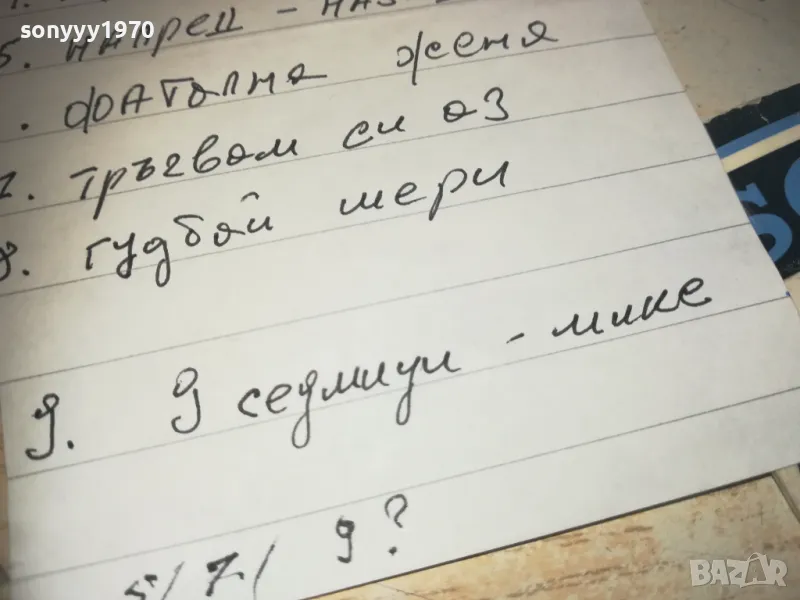 sonyyy1970
5. напред - наз
. фатална жена
7. тръгвам си аз
8. гудбай мери
9. 9 седмици - мике
5/ 7/ 9?
BAZAR